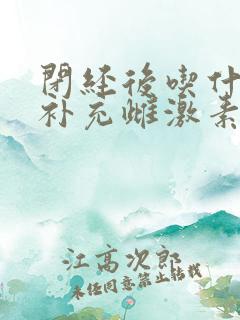 閉経後喫什
补充雌激素
江高次郎
未经同意禁止转载